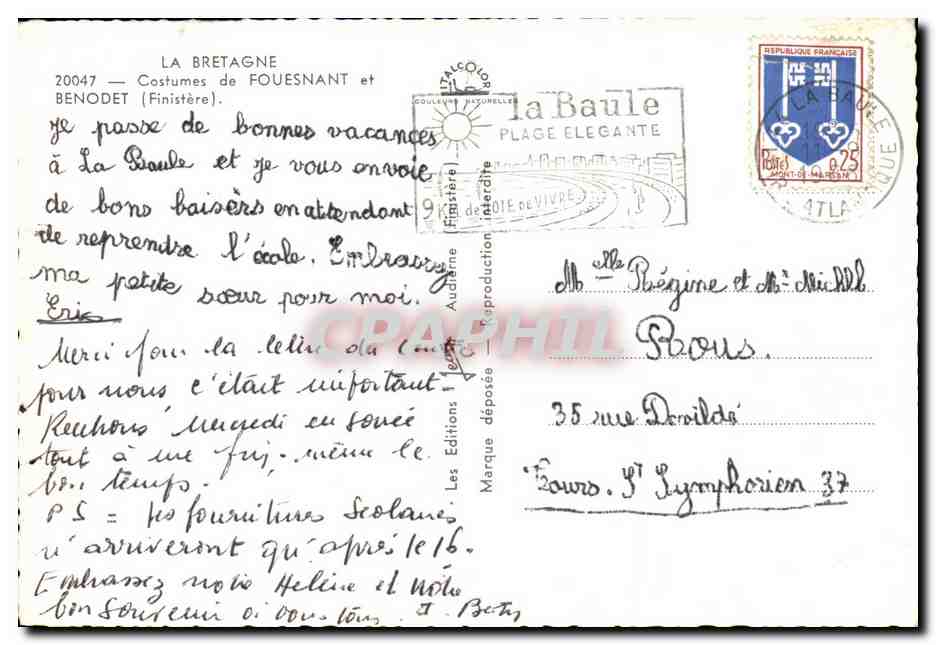 LA BRETAGNE
20047 — Costumes de FOUESNANT et
BENODET (Finistère).
Je passe de bonnes vacances
à La Baule et je vous envoie
de bons baisers en attendant
de reprendre l'école. Embrassez
ma petite sœur pour moi.
Eric
Merci pour la lettre du
pour nous c'était important -
Rentrons Mercredi en soirée
tout à une fin - même le
bon temps.
P S = les fournitures scolaires
n'arriveront qu'après le 16.
Embrassez notre Hélène et notre
bon souvenir à vous tous
ITALCOLOR
COULEURS NATURELLES
la Baule
PLAGE ELEGANTE
9 K de JOIE DE VIVRE
Les Editions Audierne (Finistère)
Marque déposée — Reproduction interdite
REPUBLIQUE FRANÇAISE
POSTES 0,25
MONT-DE-MARSAN
LA BAULE
ATLA IQUE
CPAPHIL
Melle Régine et Mr Michel
Rous.
35 rue
Tours. St Symphorien 37